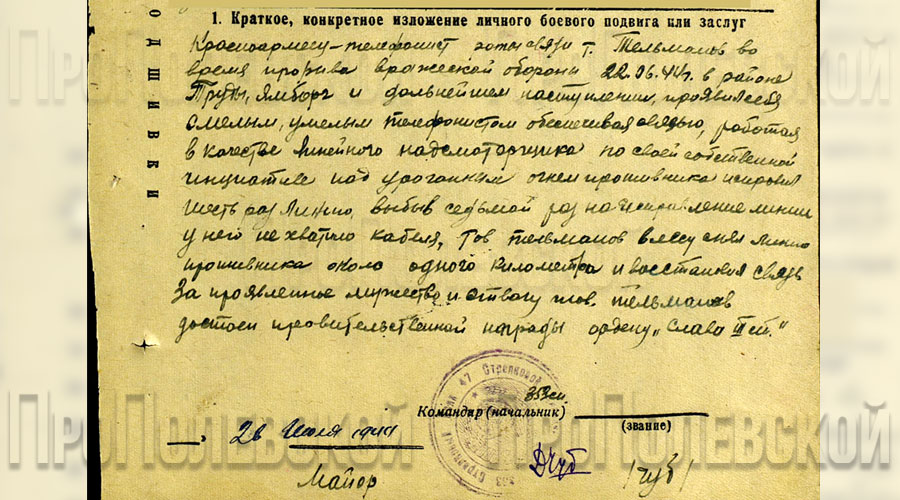 ПОДШИВКИ
1. Краткое, конкретное изложение личного боевого подвига или заслуг
Красноармеец-телефонист роты связи т. Тельманов во
время прорыва вражеской обороны 22.06.44г. в районе
Труды, Ямборг и дальнейшем наступлении, проявил себя
смелым, умелым телефонистом обеспечивая связью, работая
в качестве линейного надсмоторщика по своей собственной
инциативе под ураганным огнем противника исправил
шесть раз линию, выбыв седьмой раз на исправление линии
у него не хватило кабеля, тов Тельманов в лесу снял линию
противника около одного километра и восстановил связь
За проявленное мужество и отвагу тов. Тельманов
достоен правительственной награды ордену "Слава III ст."
47 Стрелковой
353 сп.
Командир (начальник)
(звание)
26 Июля 1944
Майор
/Чуб/
ПроПолевской
ПроПолевской
ПроПолевской
ПроПолевской